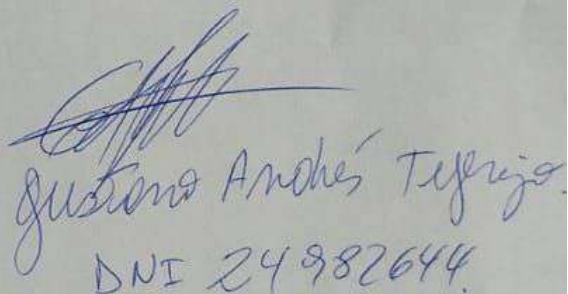 Gustavo Andrés Tejerizo.
DNI 24982644.